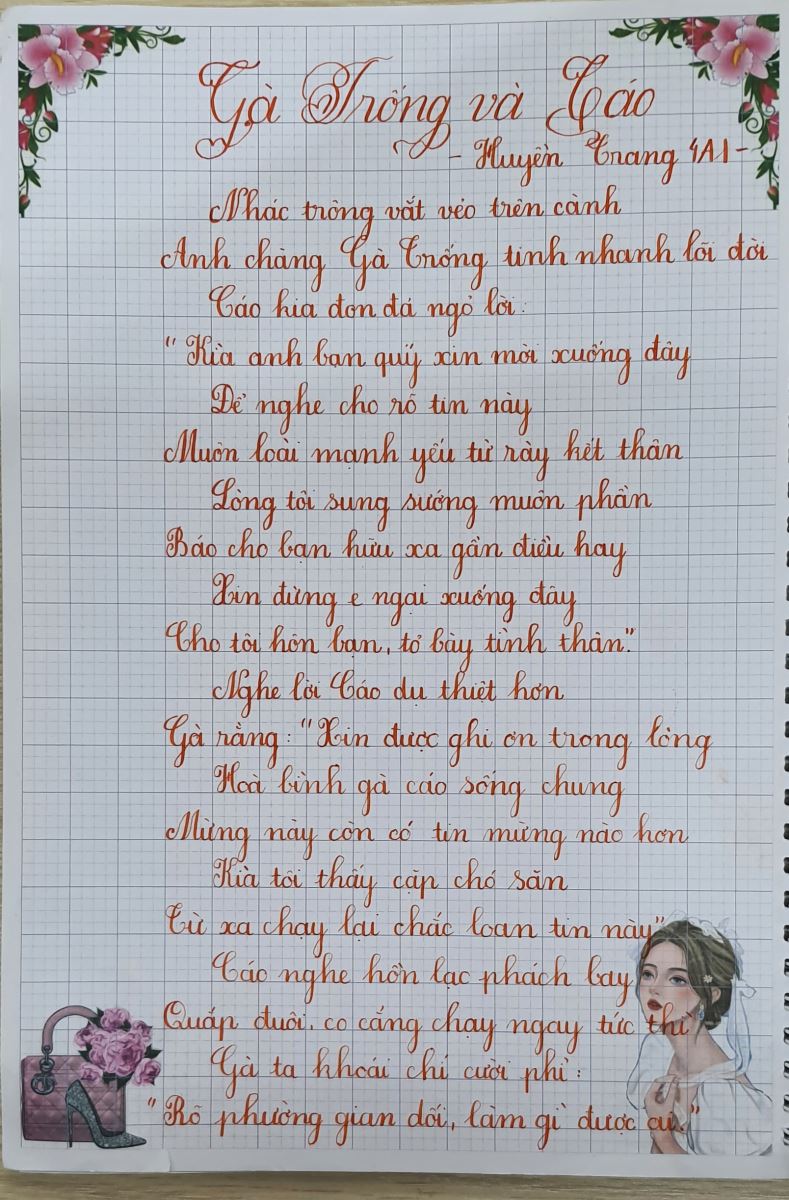 Gà Trống và Cáo
- Huyền Trang 4A1 -
Nhác trông vắt vẻo trên cành
Anh chàng Gà Trống tinh nhanh lõi đời
Cáo kia đon đả ngỏ lời:
"Kìa anh bạn quý xin mời xuống đây
Để nghe cho rõ tin này
Muôn loài mạnh yếu từ rày kết thân
Lòng tôi sung sướng muôn phần
Báo cho bạn hữu xa gần điều hay
Xin đừng e ngại xuống đây
Cho tôi hôn bạn, tỏ bày tình thân".
Nghe lời Cáo dụ thiệt hơn
Gà rằng: "Xin được ghi ơn trong lòng
Hoà bình gà cáo sống chung
Mừng này còn có tin mừng nào hơn
Kìa tôi thấy cặp chó săn
Từ xa chạy lại chắc loan tin này"
Cáo nghe hồn lạc phách bay
Quắp đuôi, co cẳng chạy ngay tức thì
Gà ta khoái chí cười phì:
"Rõ phường gian dối, làm gì được ai."